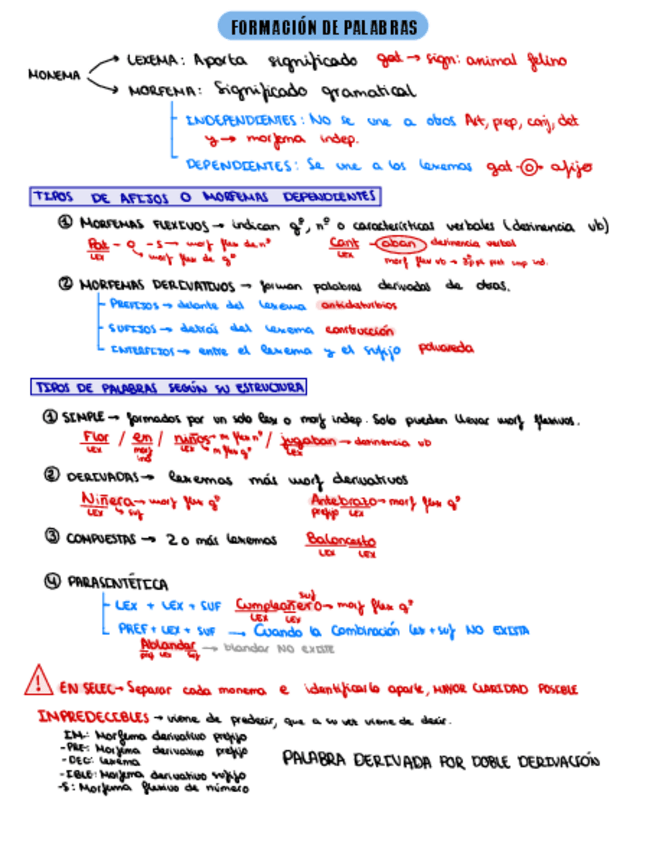 FORMACIÓN DE PALABRAS
MONEMA
LEXEMA: Aporta significado gat → sign: animal felino
MORFEMA: Significado gramatical
INDEPENDIENTES: No se une a otros Art, prep, conj, det
y → morfema indep.
DEPENDIENTES: Se une a los lexemas gat-o→ afijo
TIPOS DE AFIJOS O MORFEMAS DEPENDIENTES
① MORFEMAS FLEXIVOS → indican gº, nº o características verbales (desinencia vb)
Pat - o - s → morf flex de nº Cant - aban desinencia verbal
LEX morf flex de gº LEX
② MORFEMAS DERIVATIVOS → forman palabras derivadas de otras.
PREFIJOS → delante del lexema antidisturbios
SUFIJOS → detrás del lexema construcción
INTERFIJOS → entre el lexema y el sufijo polvareda
TIPOS DE PALABRAS SEGÚN SU ESTRUCTURA
① SIMPLE → formados por un solo lex o morf indep. Solo pueden llevar morf flexivos.
Flor / en / niños → m flex nº / jugaban → desinencia vb
LEX morf ind LEX m flex gº LEX
② DERIVADAS → lexemas más morf derivativos
Niñera → morf flex gº Antebrazo → morf flex gº
LEX suf prefijo LEX
③ COMPUESTAS → 2 o más lexemas Baloncesto
LEX LEX
④ PARASINTÉTICA
suf
LEX + LEX + SUF Cumpleañero → morf flex gº
LEX LEX
PREF + LEX + SUF → Cuando la combinación lex + suf NO EXISTA
Ablandar → blandar NO EXISTE
LEX
! EN SELEC → Separar cada monema e identificarlo aparte, MAYOR CLARIDAD POSIBLE
IMPREDECIBLES → viene de predecir, que a su vez viene de decir.
IM-: Morfema derivativo prefijo
-PRE: Morfema derivativo prefijo
-DEC: Lexema
-IBLE: Morfema derivativo sufijo
-S: Morfema flexivo de número
PALABRA DERIVADA POR DOBLE DERIVACIÓN